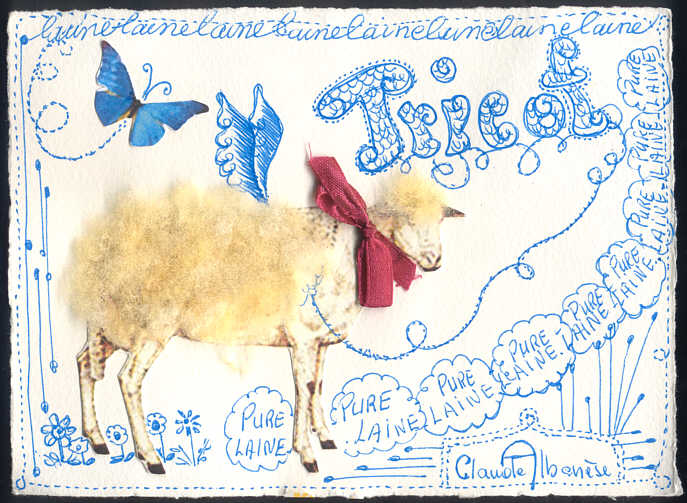 laine laine laine laine laine laine laine laine
Tricot
PURE LAINE
PURE LAINE
PURE LAINE
PURE LAINE
PURE LAINE
PURE LAINE
PURE LAINE
PURE LAINE
PURE LAINE
PURE LAINE
Claude Albanèse